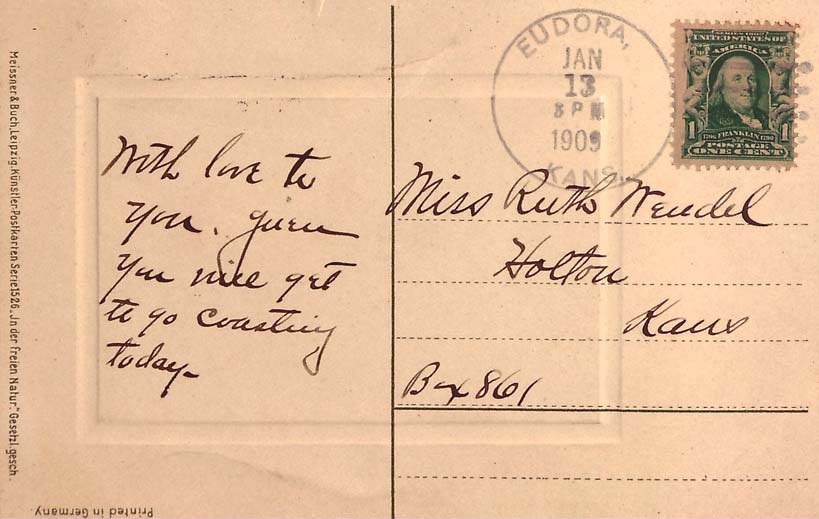 EUDORA,
JAN
13
3 PM
1909
KANS.
SERIES 1902
UNITED STATES OF
AMERICA
1 1706 FRANKLIN 1790 1
POSTAGE
ONE CENT
With love to
you. guess
you will get
to go coasting
today—
Miss Ruth Wendel
Holton
Kans
Box 861
Meissner & Buch, Leipzig. Künstler-Postkarten Serie 1526. „In der freien Natur." Gesetzl. gesch.
Printed in Germany.